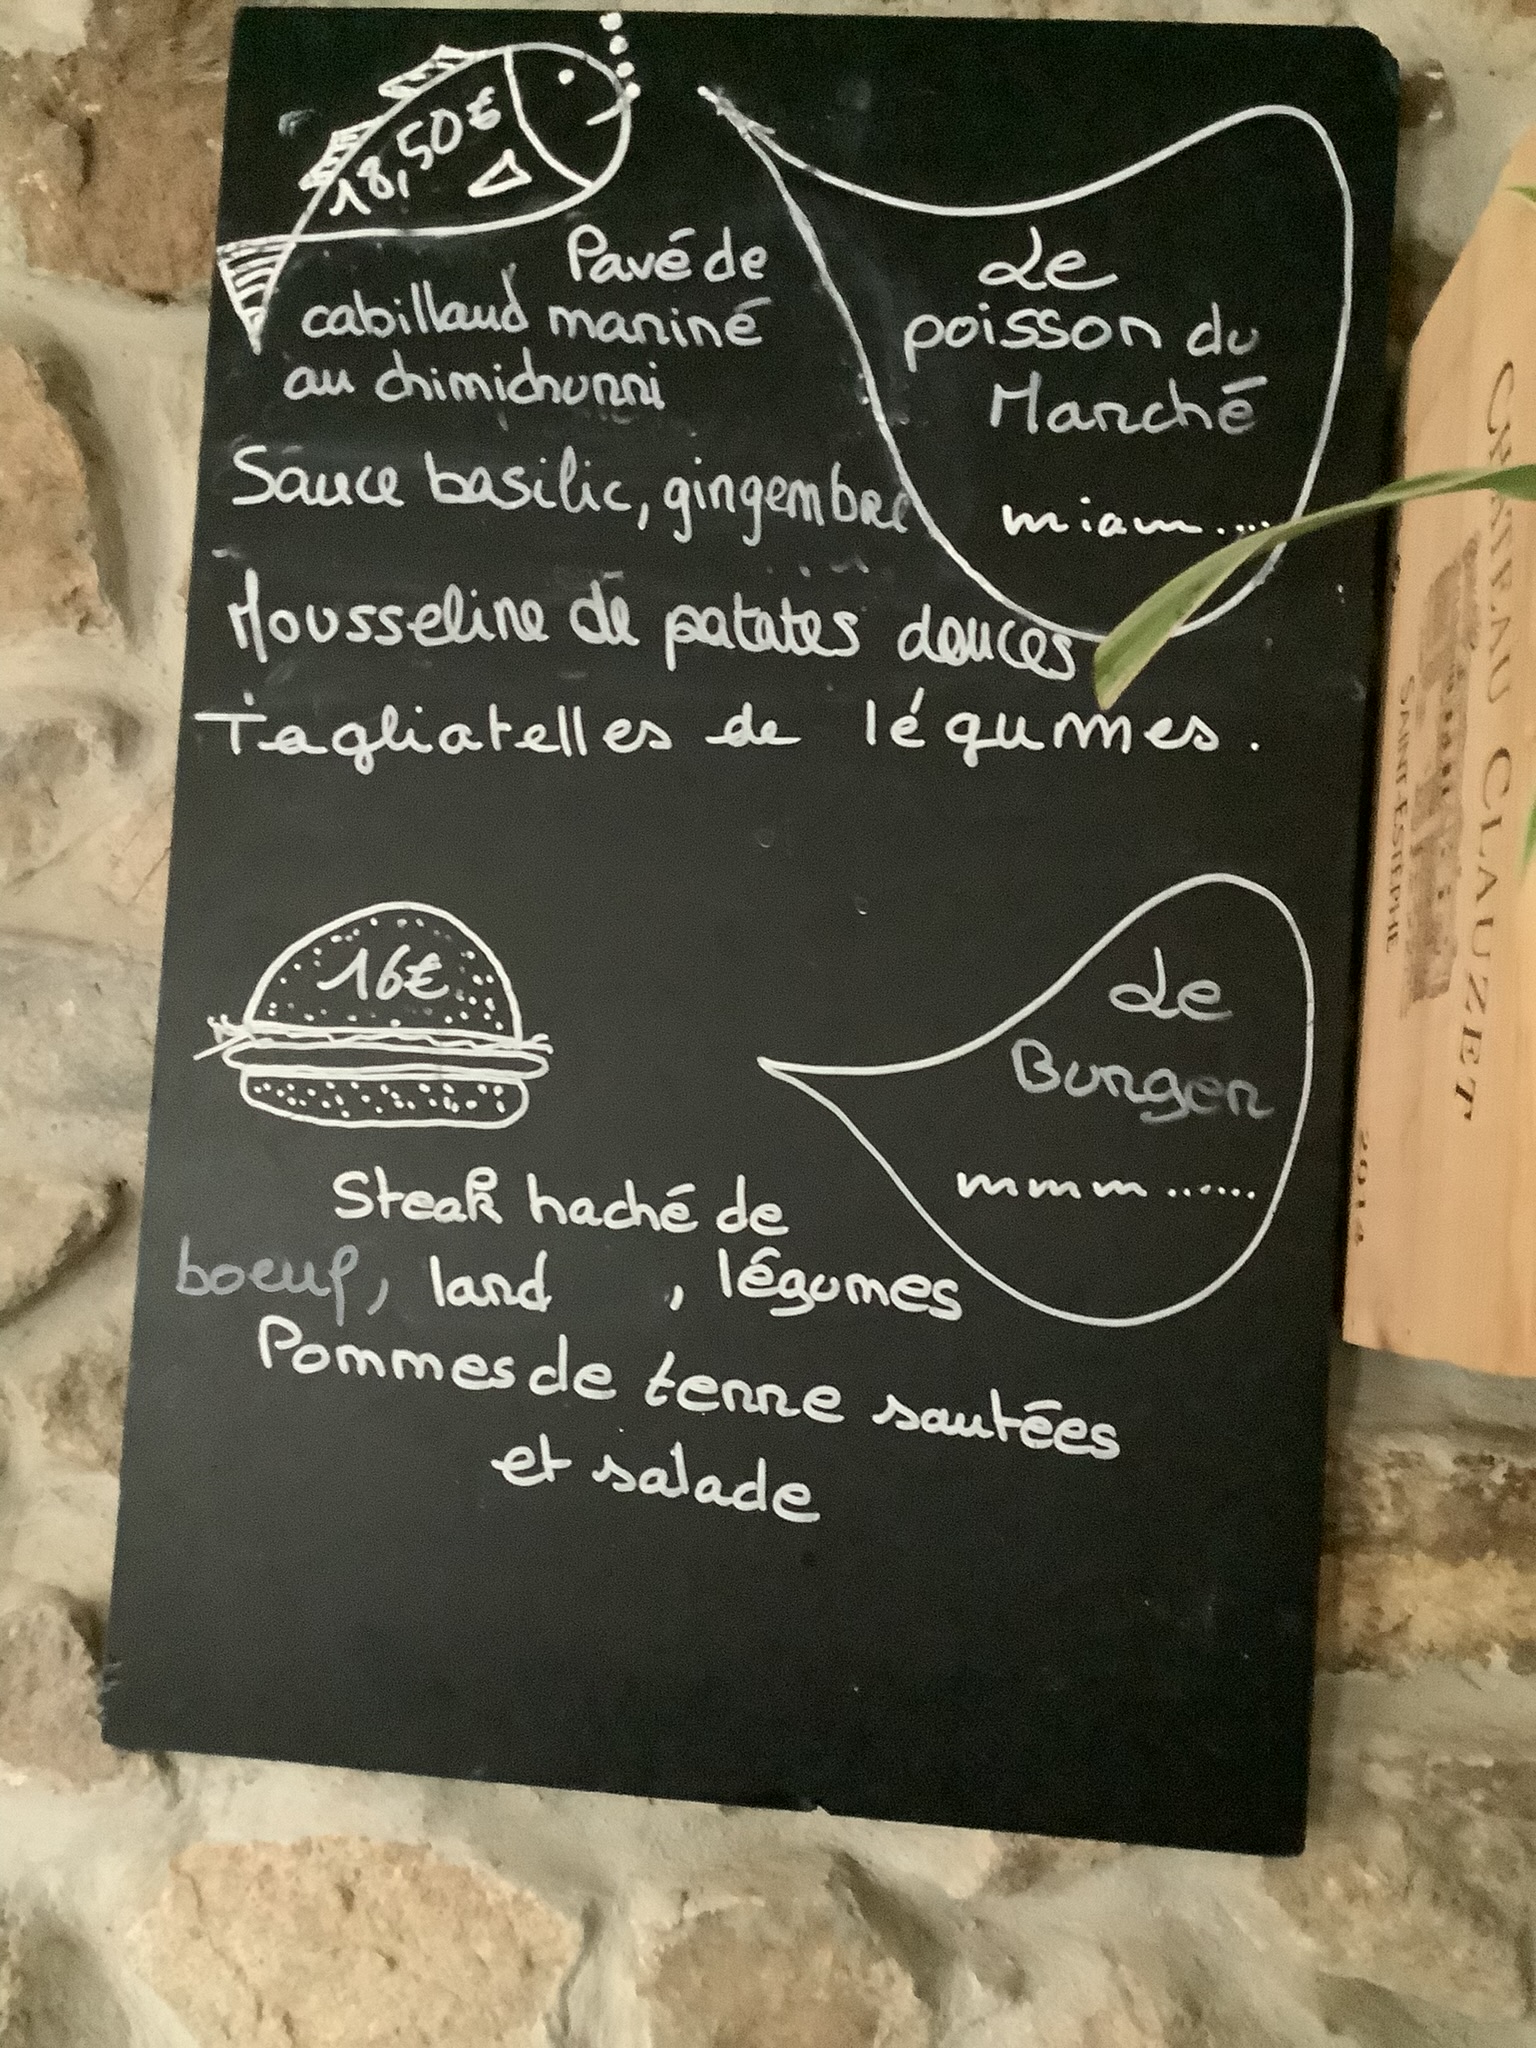 18,50€
Pavé de
cabillaud mariné
au chimichurri
Sauce basilic, gingembre
Mousseline de patates douces
Tagliatelles de légumes.
Le
poisson du
Marché
miam....
16€
Le
Burger
mmm.......
Steak haché de
boeuf, lard , légumes
Pommes de terre sautées
et salade
CHATEAU CLAUZET
SAINT-ESTEPHE